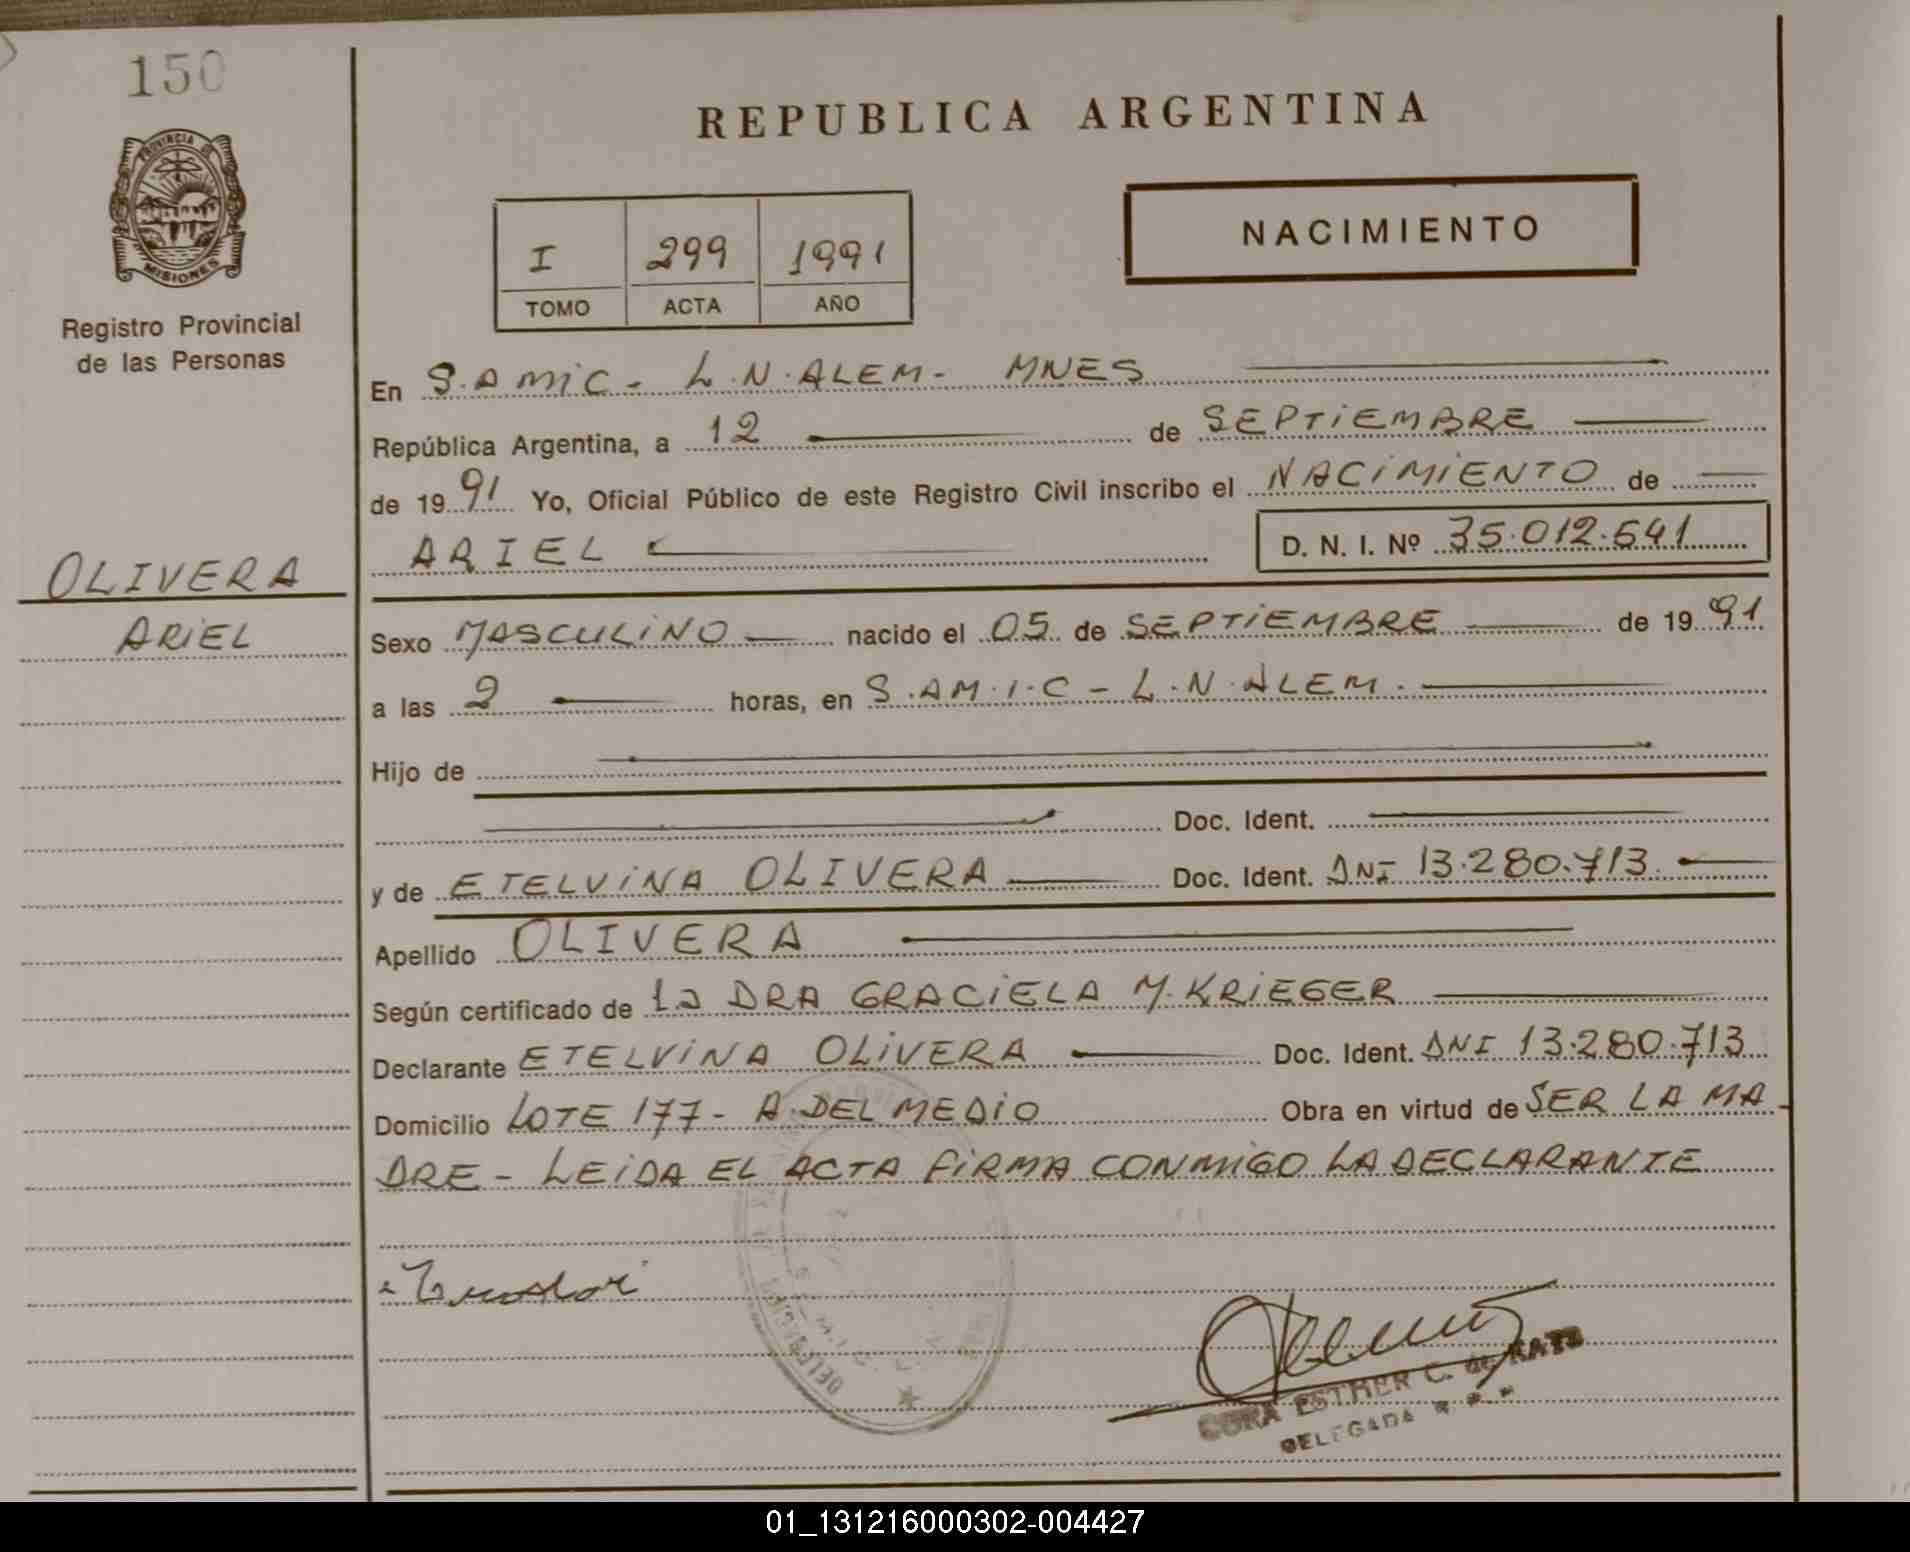 150
PROVINCIA DE
MISIONES
Registro Provincial
de las Personas
OLIVERA
ARIEL
REPUBLICA ARGENTINA
I 299 1991
TOMO ACTA AÑO
NACIMIENTO
En S.AMIC- L.N.ALEM- MNES
República Argentina, a 12 de SEPTIEMBRE
de 1991 Yo, Oficial Público de este Registro Civil inscribo el NACIMIENTO de
ARIEL D. N. I. Nº 35.012.541
Sexo MASCULINO nacido el 05 de SEPTIEMBRE de 1991
a las 2 horas, en S.AM.I.C - L.N.ALEM.
Hijo de
Doc. Ident.
y de ETELVINA OLIVERA Doc. Ident. DNI 13.280.713.
Apellido OLIVERA
Según certificado de la DRA GRACIELA M. KRIEGER
Declarante ETELVINA OLIVERA Doc. Ident. DNI 13.280.713
Domicilio LOTE 177- A.DEL MEDIO Obra en virtud de SER LA MA-
DRE - LEIDA EL ACTA FIRMA CONMIGO LA DECLARANTE
CORA ESTHER C. de
DELEGADA
01_131216000302-004427